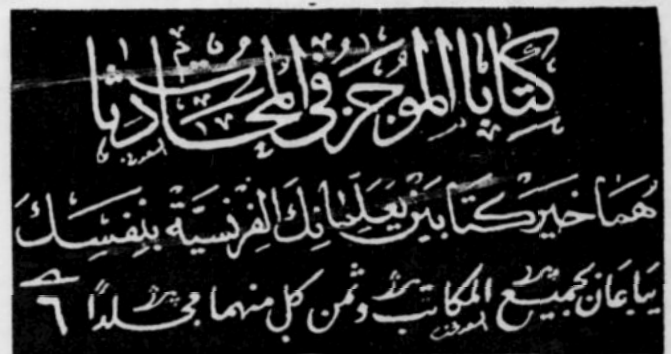 كتابا الموجز في المحادثات
هما خير كتابين يعلمانك الفرنسية بنفسك
يباعان بجميع المكاتب وثمن كل منهما مجلدا ٦